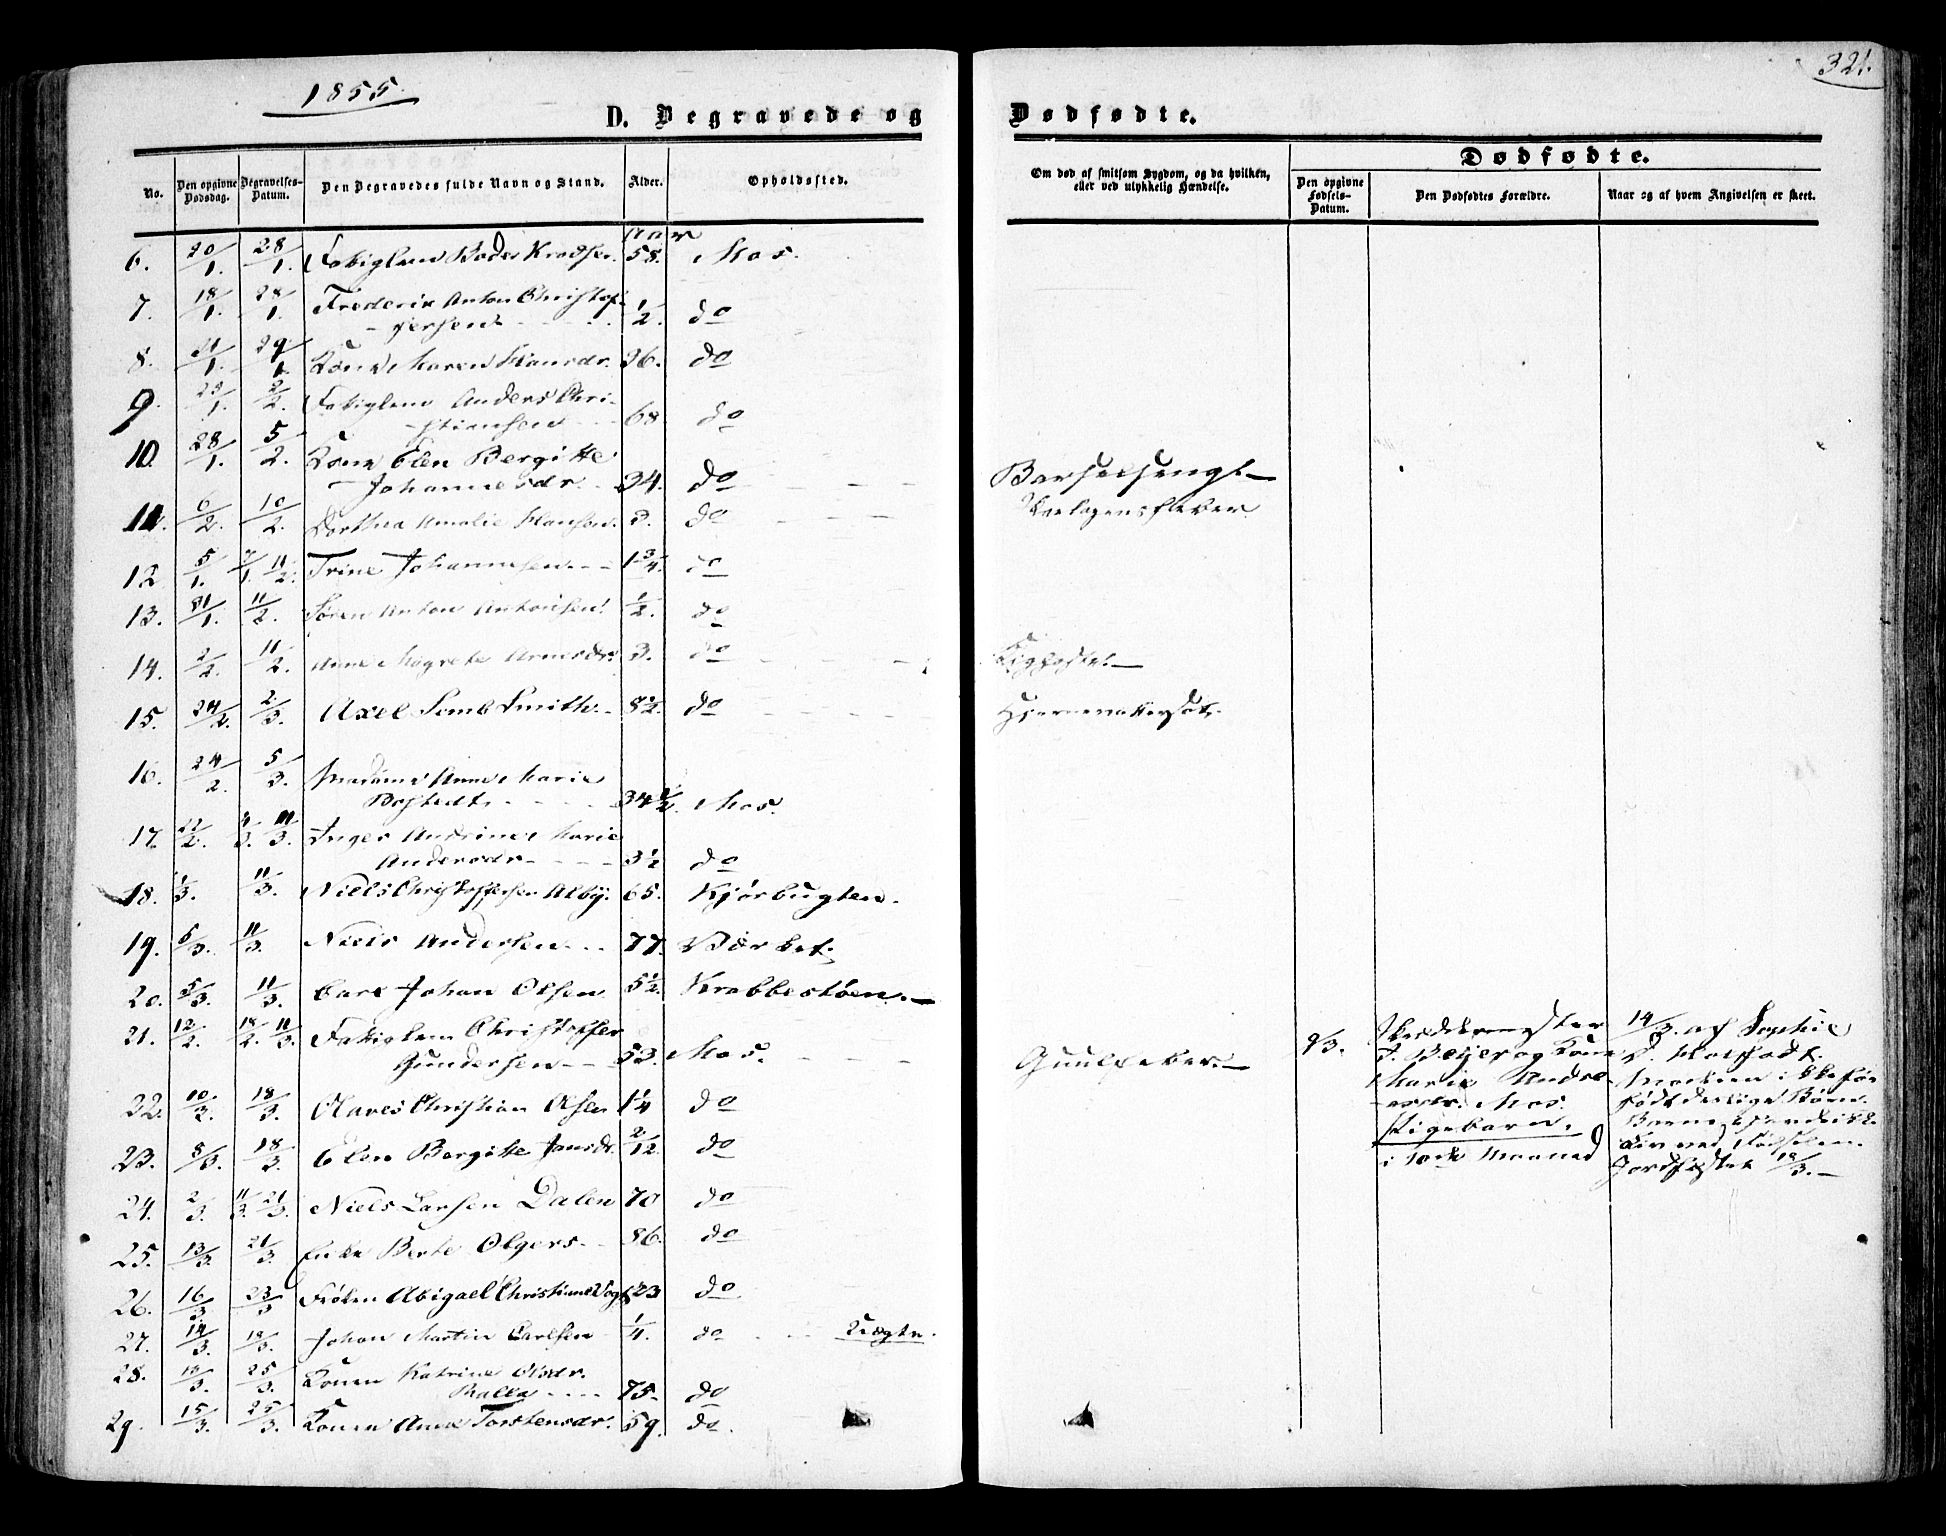 1855.
321.
D. Begravede og Dødfødte.
No. Den opgivne Dødsdag. Begravelses-Datum. Den Begravedes fulde Navn og Stand. Alder. Opholdssted.
Om død af smitsom Sygdom, og da hvilken, eller ved ulykkelig Hændelse.
Dødfødte.
Den opgivne Fødsels-Datum. Den Dødfødtes Forældre. Naar og af hvem Angivelsen er skeet.
6. 20/1. 28/1. 58. Mos.
7. 18/1. 28/1. Frederik Anton Christof-
fersen 1/2. do
8. 21/1. 29/1. Kone Maren Hansdr. 36. do
9. 2/2. Anders Chri-
stiansen 68 do
10. 28/1. 5/2. Kone Elen Bergitte
Johannesdr. 34. do Barselseng
11. 6/2. 10/2. Dorthea Amalie Hansen. 3. do Skarlagensfeber
12 5/1. 7/1. 11/2. Trine Johannesen 1 3/4. do
13. 31/1. 11/2. Søren Anton Antonsen. 1/2. do
14. 2/2. 11/2. Anne Magrete Arnesdr. 3. do
15. 24/2. 2/3. Axel Somb Smith. 8 1/2. do
16. 24/2. 5/3. Madame Anne Marie
34 1/2. Mos.
17. 4/3. 11/3. Inger Andrine Marie
Andersdr. 3 1/2 do
18. 1/3. 11/3. Niels Christoffersen Alby. 65. Kjørbugten.
19. 5/3. 11/3. Niels Andersen 77.
20. 5/3. 11/3. Carl Johan Olsen 5 1/2. Krabbestøen.
21. 12/2. 18/2. 11/3. Christoffer
Gundersen 53. Mos. Guulfeber.
22. 10/3. 18/3. Olaves Christian Olsen 1 1/4 do
23. 8/3. 18/3. Elen Bergitte Jansdr. 2/12. do
24. 2/3. 11/3. 21/3. Niels Larsen Dalen 70 do
25. 13/3. 21/3. Enke Berte Olgers. 86. do
26. 16/3. 23/3 Frøken Abigael Christiane Vogt 23 do.
27. 14/3. 18/3. Johan Martin Carlsen 1/4. do
28. 25/3. Konen Katrine Olsdr.
75. do
29. 15/3. 25/3. Konen Anne Torstensdr. 59. do.
J. Beyer og Kone
Marie Andre-
Mos.
Pigebarn.
i 10de Maaned
14/3. af Sophie
Madmen ikke før
født deslige Børn.
Liv ved Fødselen.
Jordfæstet 18/3.